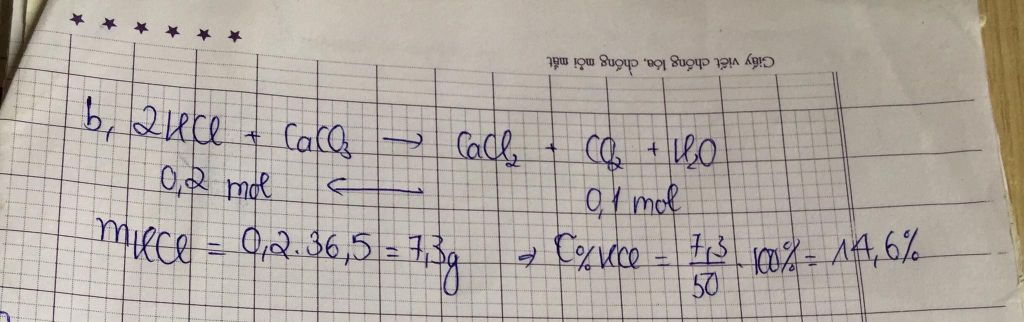 Giấy viết chống lóa, chống mỏi mắt
b, 2HCl + CaCO₃ → CaCl₂ + CO₂ + H₂O
0,2 mol ← 0,1 mol
mHCl = 0,2.36,5 = 7,3g → C%HCl = 7,3/50 . 100% = 14,6%